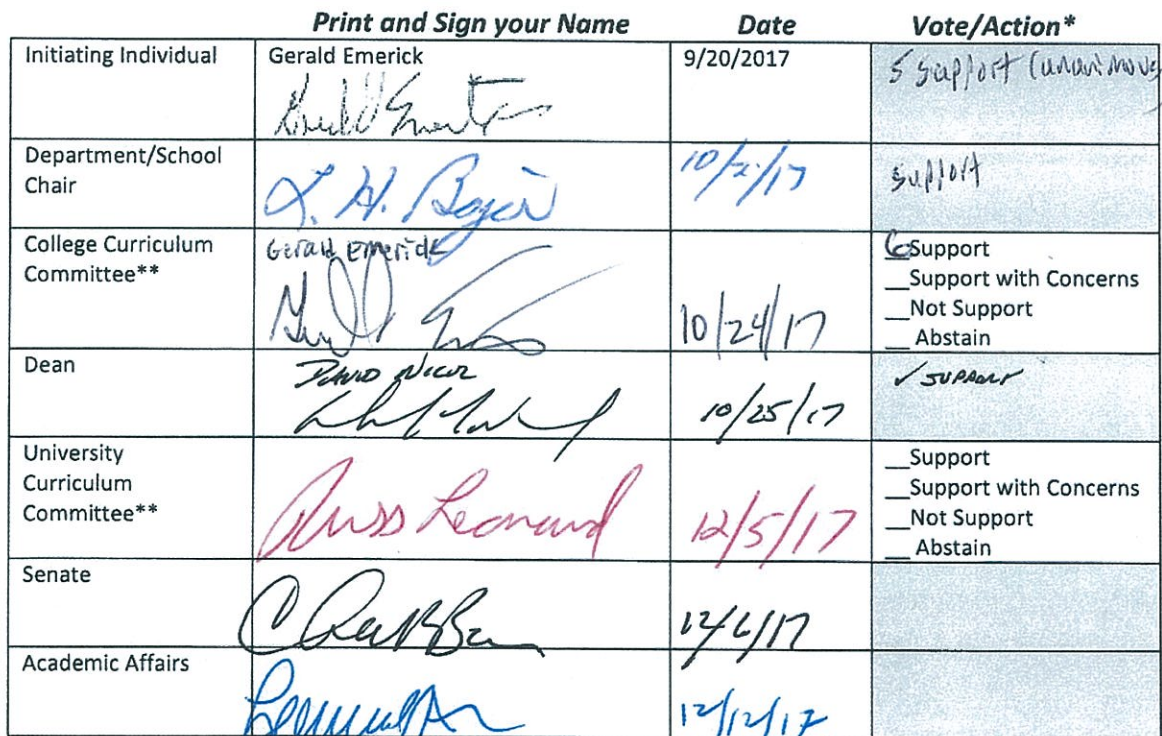 Print and Sign your Name Date Vote/Action*
Initiating Individual Gerald Emerick 9/20/2017 5 support (unanimous
Department/School
Chair
L. H. 10/2/17 support
College Curriculum
Committee**
Gerald Emerick
10/24/17
6 Support
__Support with Concerns
__Not Support
__ Abstain
Dean
David Nicol
10/25/17
✓ SUPPORT
University
Curriculum
Committee**
Russ Leonard
12/5/17
__Support
__Support with Concerns
__Not Support
__ Abstain
Senate
12/6/17
Academic Affairs
12/12/17